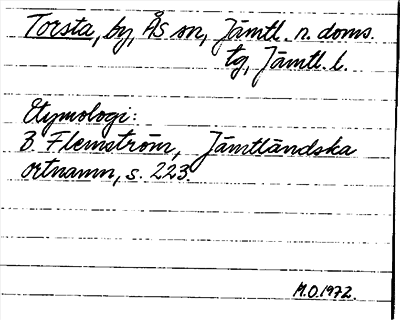 Torsta, by, Ås sn, Jämtl. n. doms.
tg, Jämtl. l.
Etymologi:
B. Flemström, Jämtländska
ortnamn, s. 223.
M.O. 1972.